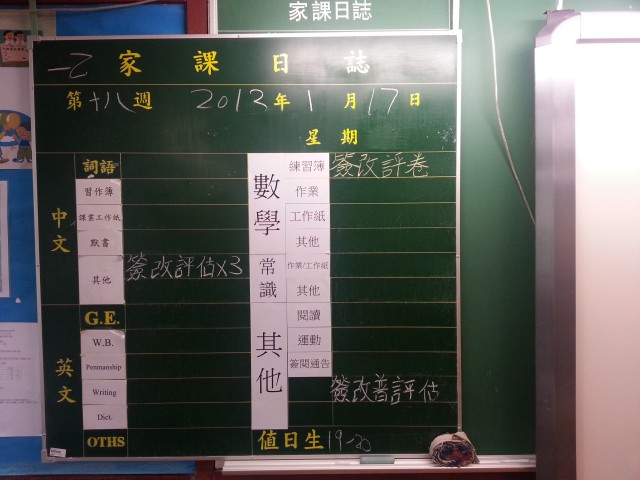 家課日誌
一乙 家課日誌
第十八週 2013年1月17日
星期
中文
詞語
習作簿
課業工作紙
默書
其他 簽改評估X3
英文
G.E.
W.B.
Penmanship
Writing
Dict.
OTHS
數學
練習簿 簽改評卷
作業
工作紙
其他
常識
作業/工作紙
其他
其他
閱讀
運動
簽閱通告
簽改普評估
值日生 19-20